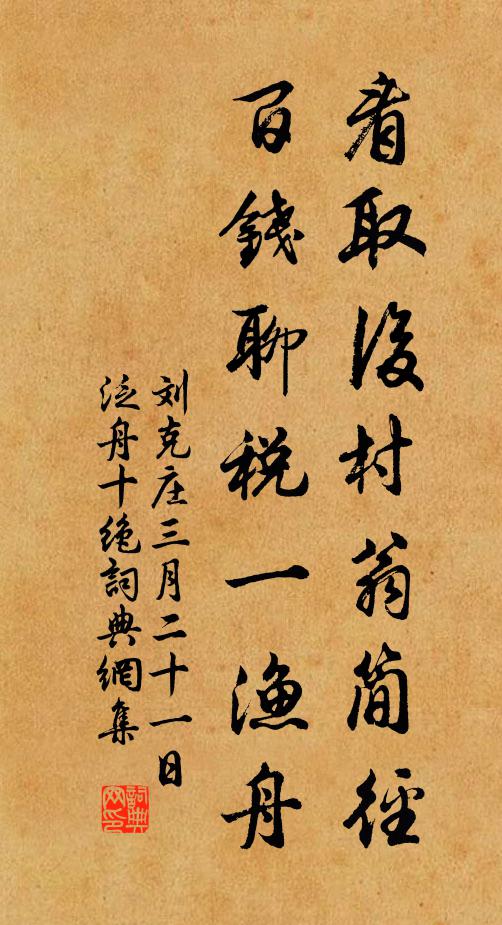 看取後村翁简徑
百錢聊税一漁舟
刘克庄三月二十一日
泛舟十绝詞典網集
詞典网印